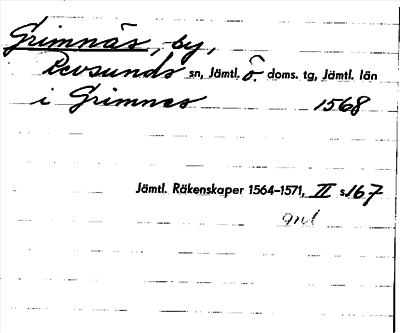 Grimnäs, by,
Revsunds sn, Jämtl. ö. doms. tg, Jämtl. län
i Grimnes 1568
Jämtl. Räkenskaper 1564–1571, II s 167